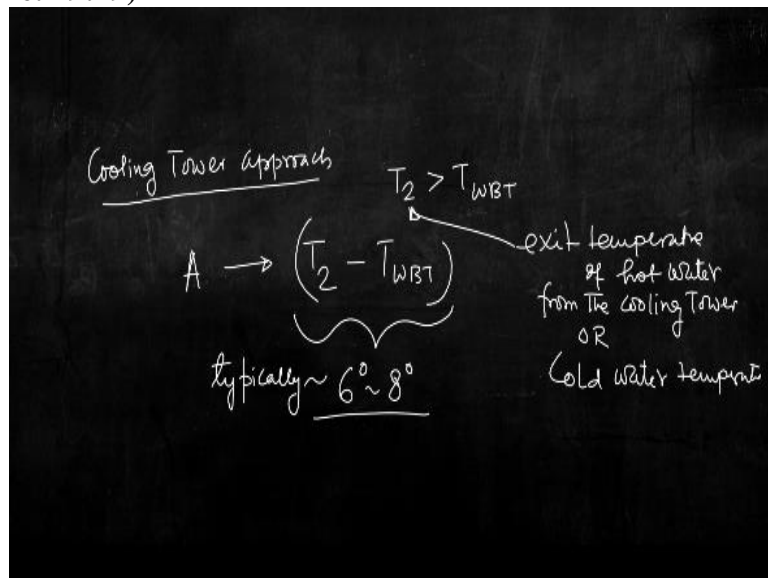 Cooling Tower approach
T₂ > T_WBT
A → (T₂ − T_WBT)
exit temperature
of hot water
from the cooling Tower
OR
Cold water temperat
typically ~ 6° ~ 8°